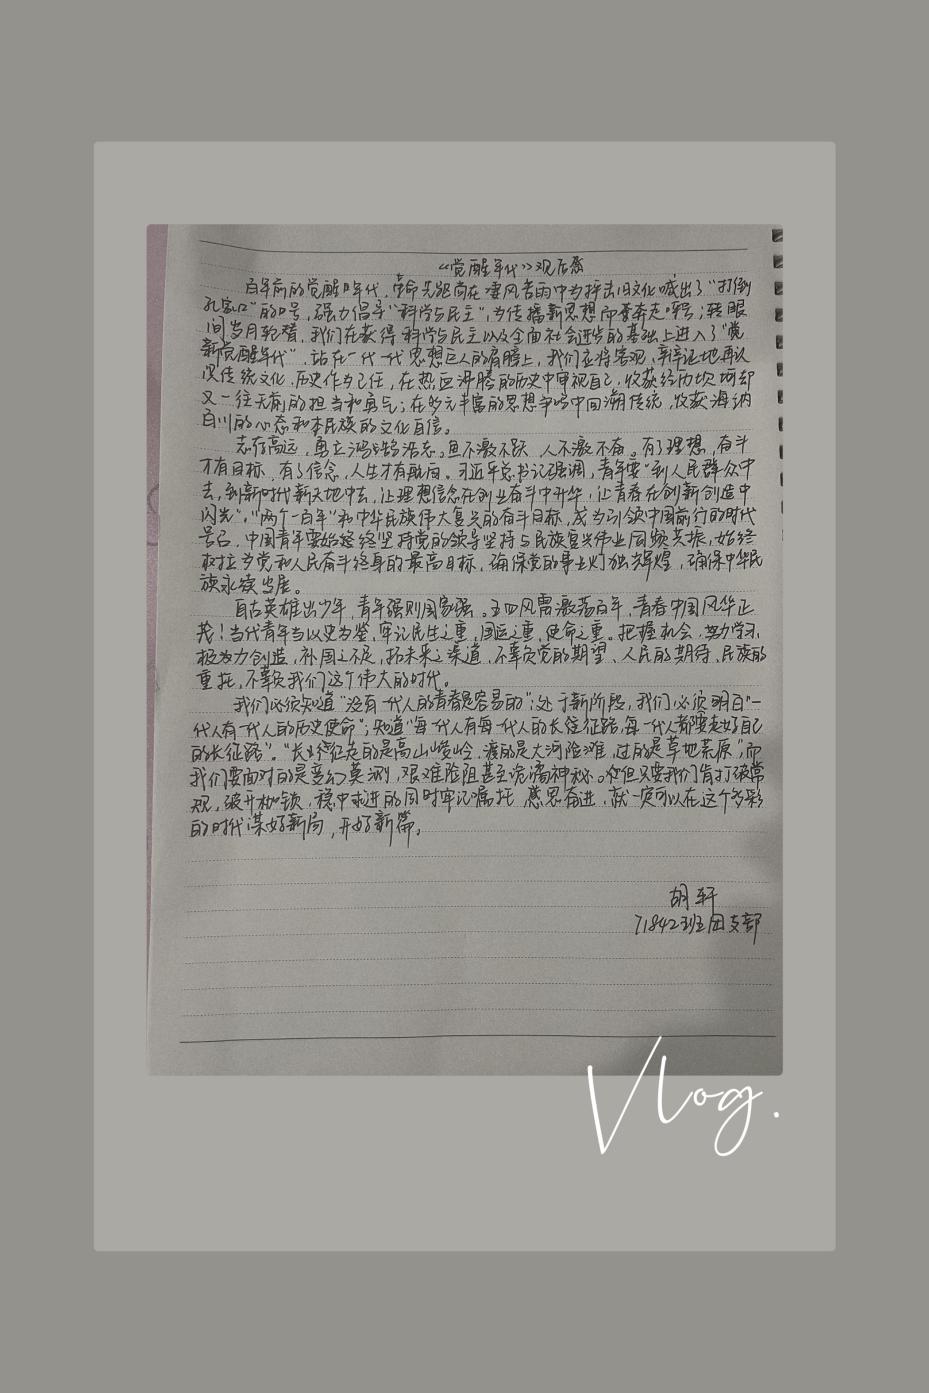 《觉醒年代》观后感
百年前的觉醒年代，革命先驱尚在凄风苦雨中为抨击旧文化喊出了“打倒
孔家店”的口号，强力倡导“科学与民主”，为传播新思想而奔走呼号；转眼
间岁月轮替，我们在获得科学与民主以及全面社会进步的基础上进入了“
新觉醒年代”，站在一代一代思想巨人的肩膀上，我们应将客观、辩证地再认
识传统文化、历史作为己任，在热血沸腾的历史中审视自己，收获经历坎坷却
又一往无前的担当和勇气；在多元丰富的思想争鸣中回溯传统，收获海纳
百川的心态和本民族的文化自信。
志存高远，勇立鸿鹄浩志。鱼不激不跃，人不激不奋。有了理想，奋斗
才有目标，有了信念，人生才有航向。习近平总书记强调，青年要“到人民群众中
去，到新时代新天地中去，让理想信念在创业奋斗中升华，让青春在创新创造中
闪光”，“两个一百年”和中华民族伟大复兴的奋斗目标，成为引领中国前行的时代
号召，中国青年要始终坚持党的领导坚持与民族复兴伟业同频共振，始终
为党和人民奋斗终身的最高目标，确保党的事业灯独辉煌，确保中华民
族永续发展。
自古英雄出少年，青年强则国家强。五四风雷激荡百年，青春中国风华正
茂！当代青年当以史为鉴，牢记民生之重，国运之重，使命之重。把握机会，努力学习，
极力创造，补国之不足，拓未来之渠道，不辜负党的期望、人民的期待、民族的
重托，不辜负我们这个伟大的时代。
我们必须知道“没有一代人的青春是容易的”；处于新阶段，我们必须明白“一
代人有一代人的历史使命”；知道“每一代人有每一代人的长征路，每一代人都要走好自己
的长征路”。“长征走的是高山峻岭，渡的是大河险滩，过的是草地荒原”，而
我们要面对的是变幻莫测，艰难险阻甚至诡谲神秘。但只要我们肯打破常
规，破开枷锁，稳中求进的同时牢记嘱托，感恩奋进，就一定可以在这个多彩
的时代谋好新局，开好新篇。
胡轩
71842班团支部
Vlog.